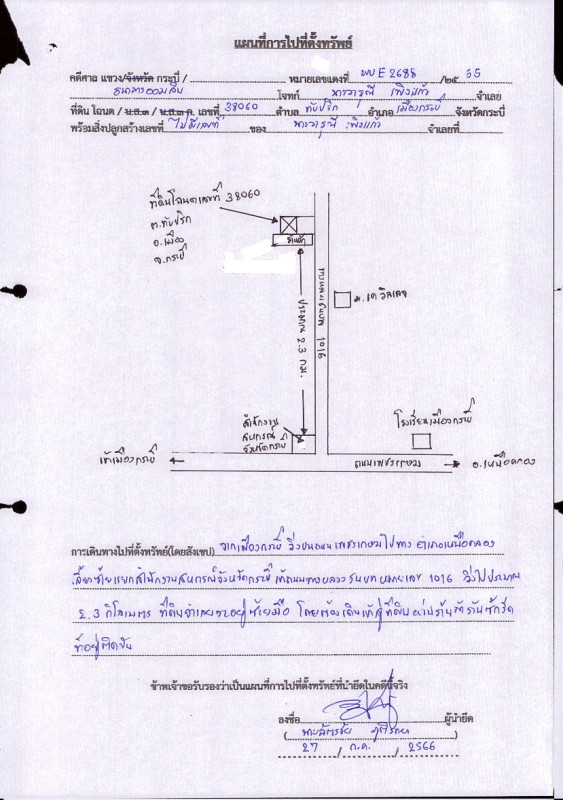 แผนที่การไปที่ตั้งทรัพย์
คดีศาล แขวง/จังหวัด กระบี่ / หมายเลขแดงที่ ผบE2688 /๒๕ 65
ธนาคารออมสิน โจทก์ นางวารุณี เพ็งแก้ว จำเลย
ที่ดิน โฉนด / น.ส.๓ / น.ส.๓ ก. เลขที่ 38060 ตำบล ทับปริก อำเภอ เมืองกระบี่ จังหวัดกระบี่
พร้อมสิ่งปลูกสร้างเลขที่ ไม่มีเลขที่ ของ นางวารุณี เพ็งแก้ว จำเลยที่
ที่ดินโฉนดเลขที่ 38060
ต.ทับปริก
อ.เมือง
จ.กระบี่
ประมาณ 2.3 กม.
ทางหลวงชนบท 1016
ม.เค วิลเลจ
สำนักงาน
สหกรณ์
จังหวัดกระบี่
โรงเรียนเมืองกระบี่
เข้าเมืองกระบี่
ถนนเพชรเกษม
อ.เหนือคลอง
การเดินทางไปที่ตั้งทรัพย์(โดยสังเขป) จากเมืองกระบี่ วิ่งบนถนนเพชรเกษมไปทาง อำเภอเหนือคลอง
เลี้ยวซ้ายแยกสำนักงานสหกรณ์จังหวัดกระบี่ เข้าถนนทางหลวงชนบทหมายเลข 1016 วิ่งไปประมาณ
2.3 กิโลเมตร ที่ดินจำเลยจะอยู่ซ้ายมือ โดยต้องเดินเข้าสู่ที่ดินผ่านร้านซักรีด
ที่อยู่ติดกัน
ข้าพเจ้าขอรับรองว่าเป็นแผนที่การไปที่ตั้งทรัพย์ที่นำยึดในคดีนี้จริง
ลงชื่อ ผู้นำยึด
27 / ก.ค. / 2566